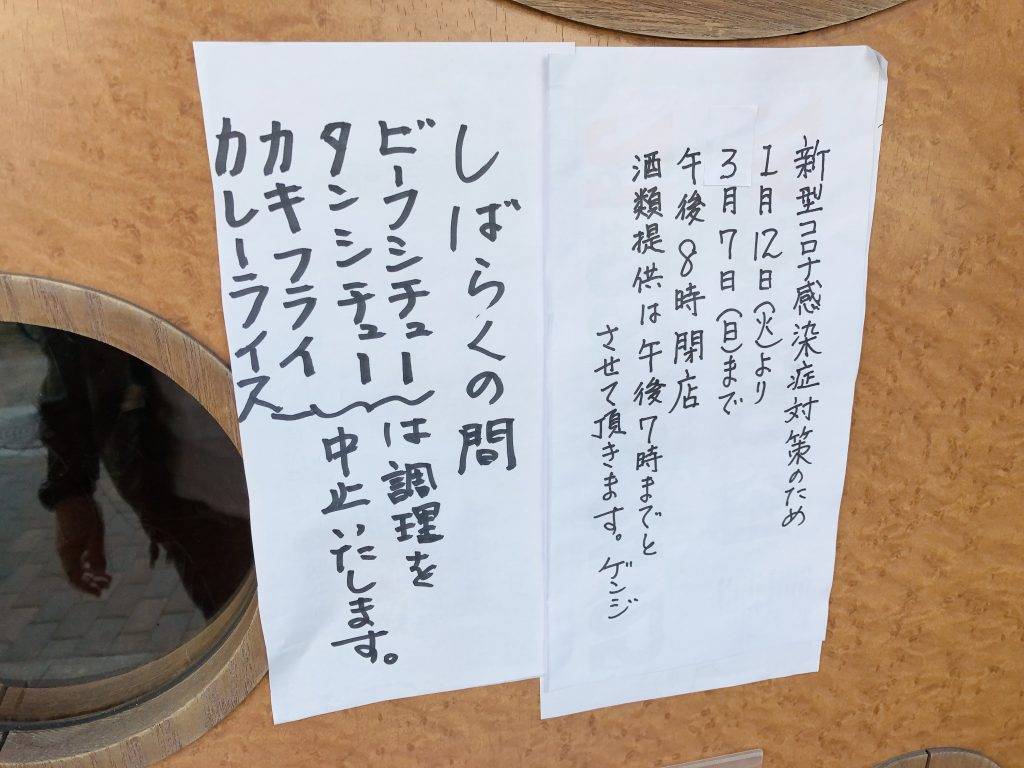 新型コロナ感染症対策のため
1月12日(火)より
3月7日(日)まで
午後8時閉店
酒類提供は午後7時までと
させて頂きます。ゲンジ
しばらくの間
ビーフシチュー
タンシチュー
カキフライ
カレーライス
は調理を
中止いたします。